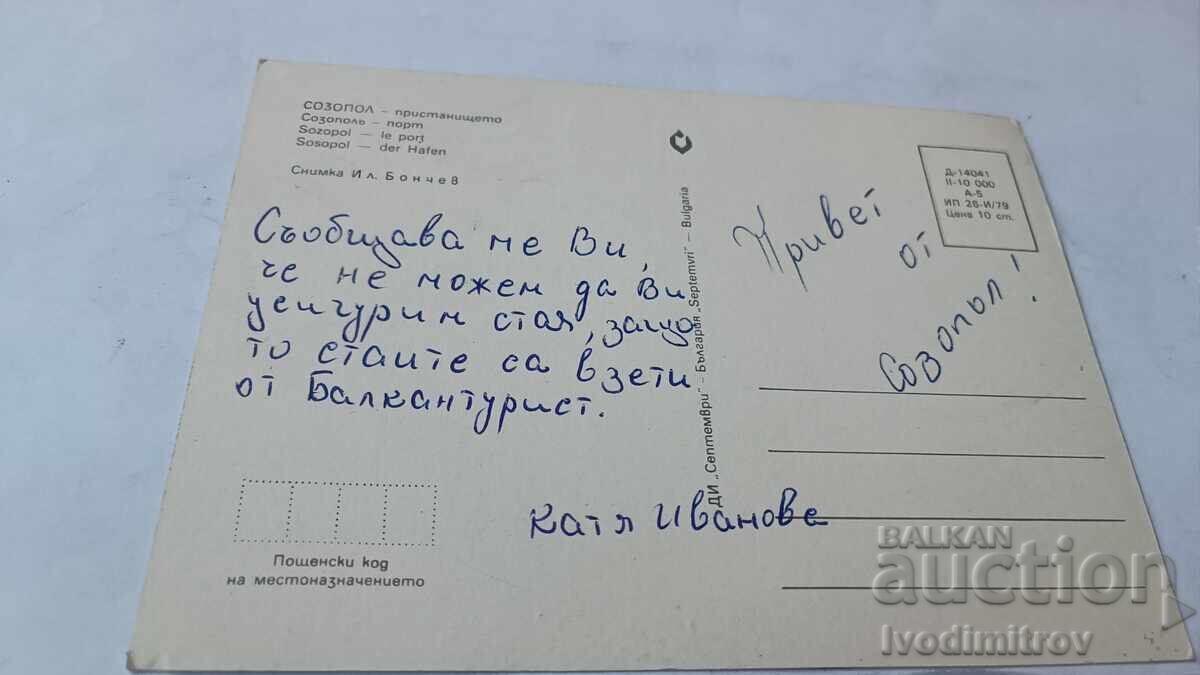 СОЗОПОЛ – пристанището
Созополь – порт
Sozopol – le port
Sosopol – der Hafen
Снимка Ил. Бончев
Съобщава ме Ви,
че не можем да Ви
усигурим стая, защо
то стаите са взети
от Балкантурист.
Катя Иванова
Пощенски код
на местоназначението
ДИ „Септември" – България „Septemvri" – Bulgaria
Д-14041
II-10 000
А-5
ИП 28-И/79
Цена 10 ст.
Привет
от
Созопол!
BALKAN
auction
Ivodimitrov